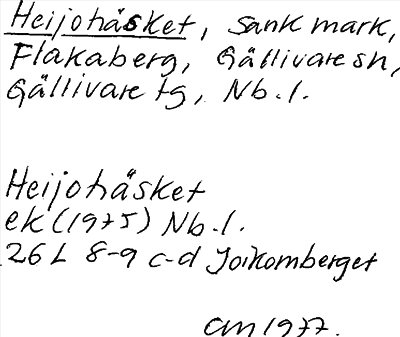 Heijohåsket, sank mark,
Flakaberg, Gällivare sn,
Gällivare tg, Nb. l.
Heijohåsket
ek (1975) Nb. l.
26 L 8-9 c-d Joikomberget
CM 1977.